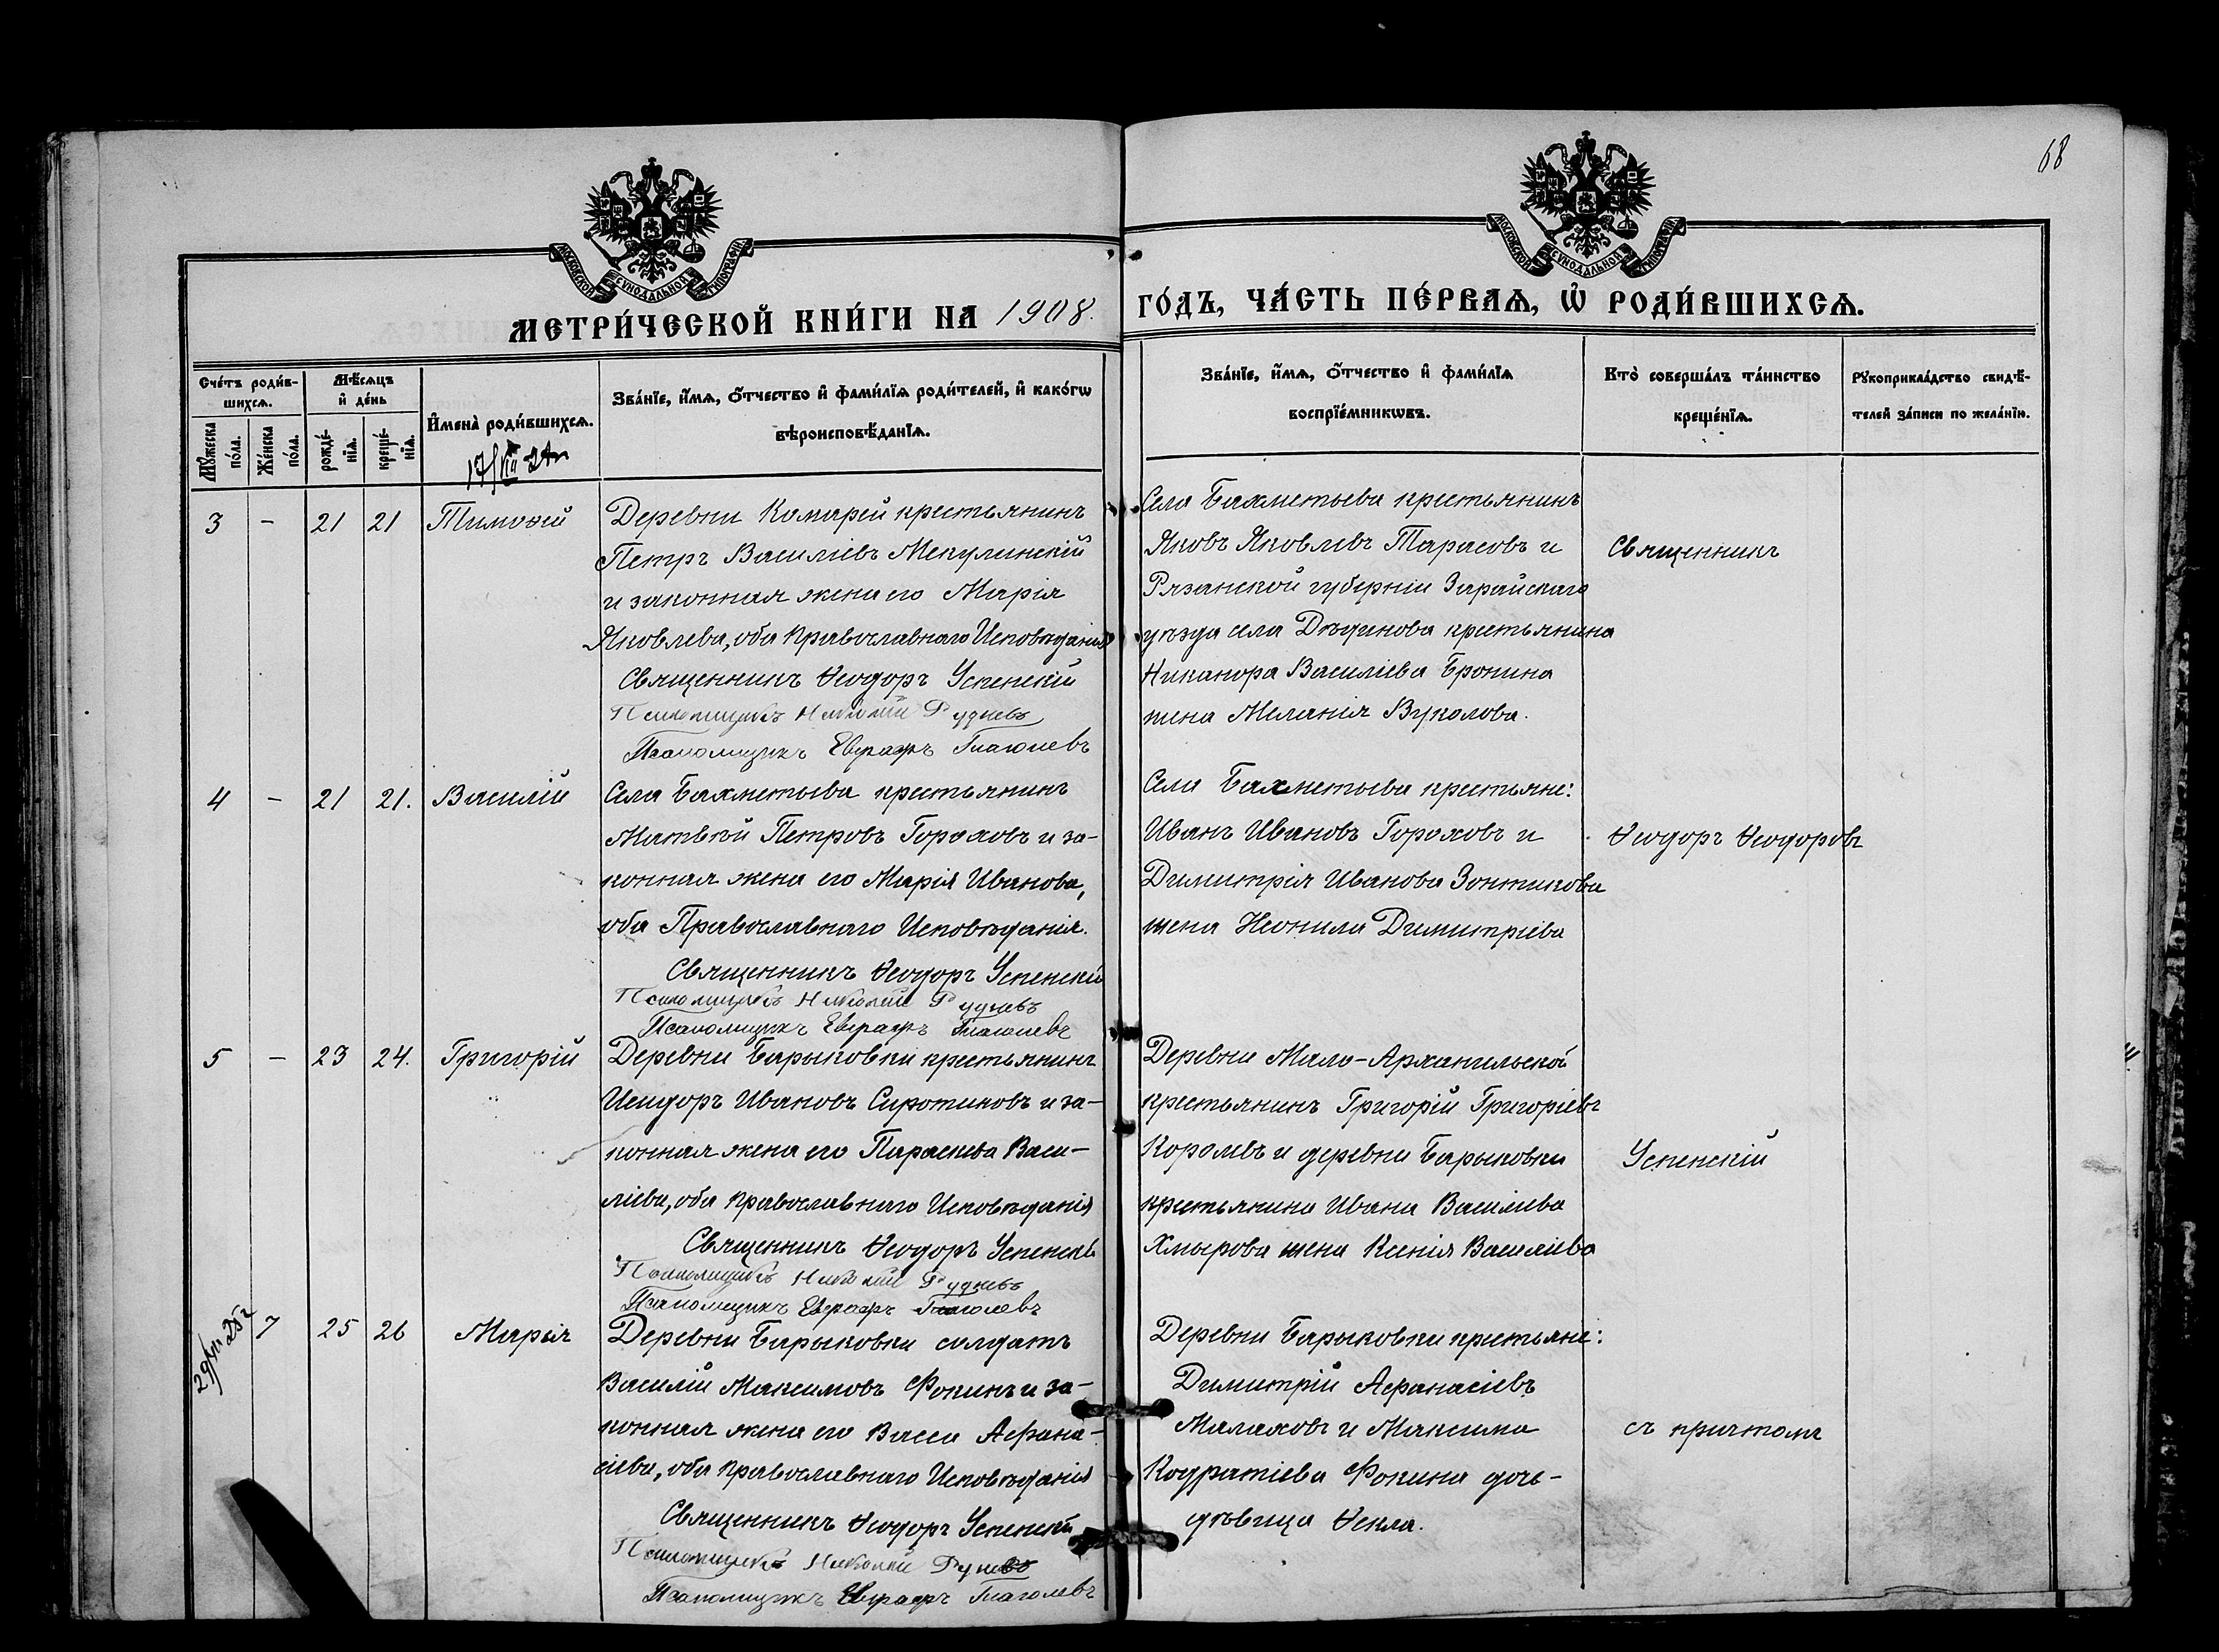 68
МОСКОВСКОЙ СѴНОДАЛЬНОЙ ТИПОГРАФІИ
МОСКОВСКОЙ СѴНОДАЛЬНОЙ ТИПОГРАФІИ
МЕТРИ́ЧЕСКОЙ КНИ́ГИ НА 1908.
ГО́ДЪ, ЧА́СТЬ ПЕ́РВАѦ, Ѡ҆ РОДИ́ВШИХСѦ.
Сче́тъ роди́в-
шихсѧ.
Мѣ́сѧцъ
и҆ де́нь
Мꙋ́жеска
по́ла.
Же́нска
по́ла.
рожде́-
нїѧ.
креще́-
нїѧ.
И҆мена̀ роди́вшихсѧ.
Зва́нїе, и҆́мѧ, ѻ҆́тчество и҆ фами́лїѧ роди́телей, и҆ како́гѡ
вѣроисповѣ́данїѧ.
Зва́нїе, и҆́мѧ, ѻ҆́тчество и҆ фами́лїѧ
воспрїе́мникѡвъ.
Кто̀ соверша́лъ та́инство
креще́нїѧ.
Рꙋкоприкла́дство свидѣ́-
телей за́писи по жела́нїю.
3 - 21 21 Тимоѳей
Деревни Комарей крестьянинъ
Петръ Василіевъ Мекулинскій
и законная жена его Марія
Яковлева, оба Православнаго Исповѣданія
Священникъ Ѳеодоръ Успенскій
Псаломщикъ Николай Рудневъ
Псаломщикъ Евграфъ Глаголевъ
Села Бахметьева крестьянинъ
Яковъ Яковлевъ Тарасовъ и
Рязанской губерніи Зарайскаго
уѣзда села Дѣдинова крестьянина
Никанора Василіева Бронина
жена Меланія Вуколова.
Священникъ
4 - 21 21. Василій
Села Бахметьева крестьянинъ
Матвѣй Петровъ Гороховъ и за-
конная жена его Марія Иванова,
оба Православнаго Исповѣданія.
Священникъ Ѳеодоръ Успенскій
Псаломщикъ Николай Рудневъ
Псаломщикъ Евграфъ Глаголевъ
Села Бахметьева крестьяне:
Иванъ Ивановъ Гороховъ и
Димитрія Иванова Зонтикова
жена Неонила Димитріева
Ѳеодоръ Ѳеодоровъ
5 - 23 24. Григорій
Деревни Барыковки крестьянинъ
Исидоръ Ивановъ Сиротиновъ и за-
конная жена его Параскева Васи-
ліева, оба православнаго Исповѣданія
Священникъ Ѳеодоръ Успенскій
Псаломщикъ Николай Рудневъ
Псаломщикъ Евграфъ Глаголевъ
Деревни Мало-Архангельской
крестьянинъ Григорій Григоріевъ
Королевъ и деревни Барыковки
крестьянина Ивана Василіева
Хмырова жена Ксенія Василіева
Успенскій
7 25 26 Марія
Деревни Барыковки солдатъ
Василій Максимовъ Фокинъ и за-
конная жена его Васса Афана-
сіева, оба православнаго Исповѣданія
Священникъ Ѳеодоръ Успенскій
Псаломщикъ Николай Рудневъ
Псаломщикъ Евграфъ Глаголевъ
Деревни Барыковки крестьяне:
Димитрій Афанасіевъ
Малаховъ и Максима
Кодратіева Фокина дочь-
дѣвица Ѳекла.
съ причтомъ